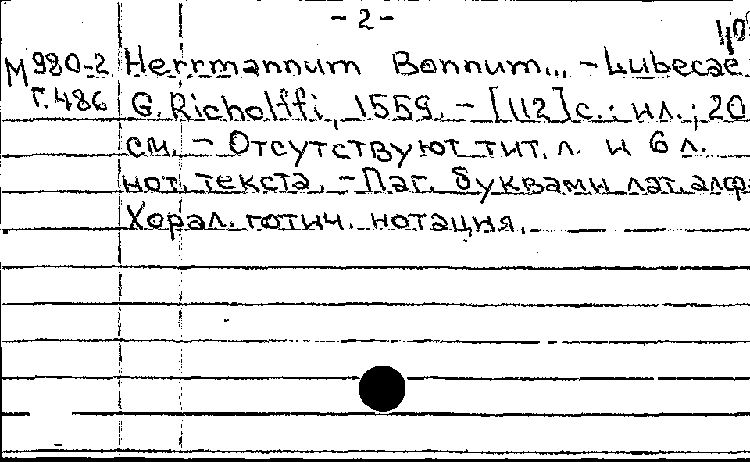 - 2 -
40
М 980-2 Herrmannum Bonnum... - Lubecae
Г. 486 G. Richolffi, 1559. - [112] с.: ил.; 20
см. - Отсутствуют тит. л. и 6 л.
нот. текста. - Паг. буквами лат. алф.
Хорал. готич. нотация.